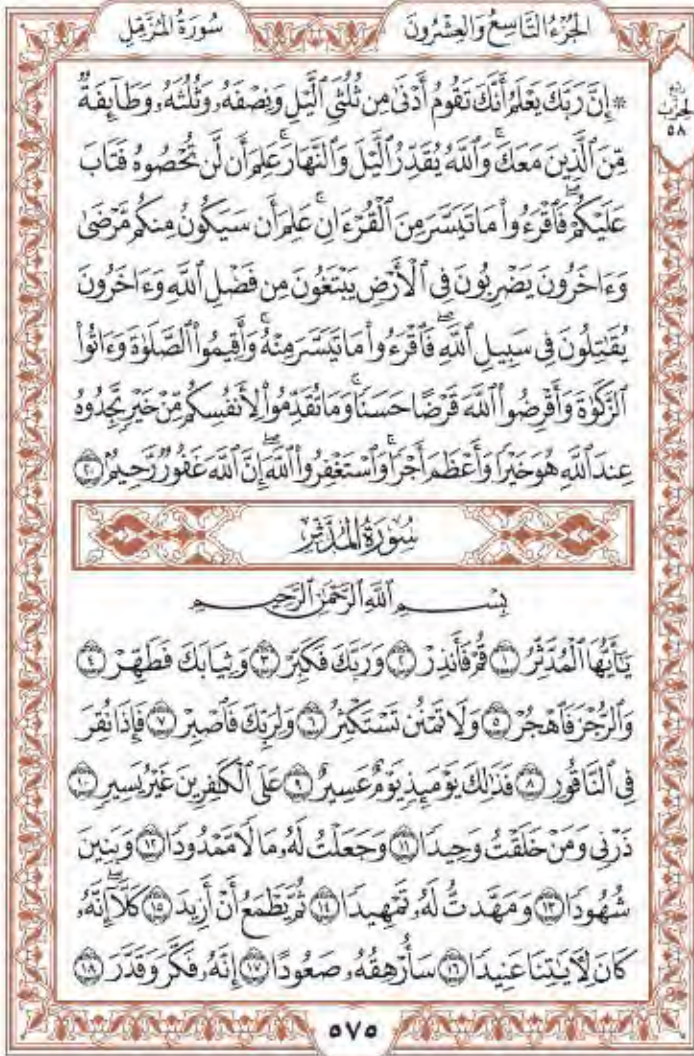 الجُزْءُ التَّاسِعُ وَالعِشْرُونَ
سُورَةُ المُزَّمِّلِ
ربع
الحزب
٥٨
۞ إِنَّ رَبَّكَ يَعْلَمُ أَنَّكَ تَقُومُ أَدْنَىٰ مِن ثُلُثَىِ ٱلَّيْلِ وَنِصْفَهُۥ وَثُلُثَهُۥ وَطَآئِفَةٌ
مِّنَ ٱلَّذِينَ مَعَكَۚ وَٱللَّهُ يُقَدِّرُ ٱلَّيْلَ وَٱلنَّهَارَۚ عَلِمَ أَن لَّن تُحْصُوهُ فَتَابَ
عَلَيْكُمْۖ فَٱقْرَءُوا۟ مَا تَيَسَّرَ مِنَ ٱلْقُرْءَانِۚ عَلِمَ أَن سَيَكُونُ مِنكُم مَّرْضَىٰ
وَءَاخَرُونَ يَضْرِبُونَ فِى ٱلْأَرْضِ يَبْتَغُونَ مِن فَضْلِ ٱللَّهِ وَءَاخَرُونَ
يُقَٰتِلُونَ فِى سَبِيلِ ٱللَّهِۖ فَٱقْرَءُوا۟ مَا تَيَسَّرَ مِنْهُۚ وَأَقِيمُوا۟ ٱلصَّلَوٰةَ وَءَاتُوا۟
ٱلزَّكَوٰةَ وَأَقْرِضُوا۟ ٱللَّهَ قَرْضًا حَسَنًاۚ وَمَا تُقَدِّمُوا۟ لِأَنفُسِكُم مِّنْ خَيْرٍ تَجِدُوهُ
عِندَ ٱللَّهِ هُوَ خَيْرًا وَأَعْظَمَ أَجْرًاۚ وَٱسْتَغْفِرُوا۟ ٱللَّهَۖ إِنَّ ٱللَّهَ غَفُورٌ رَّحِيمٌۢ ٢٠
سُورَةُ المُدَّثِّرِ
بِسْمِ ٱللَّهِ ٱلرَّحْمَٰنِ ٱلرَّحِيمِ
يَٰٓأَيُّهَا ٱلْمُدَّثِّرُ ١ قُمْ فَأَنذِرْ ٢ وَرَبَّكَ فَكَبِّرْ ٣ وَثِيَابَكَ فَطَهِّرْ ٤
وَٱلرُّجْزَ فَٱهْجُرْ ٥ وَلَا تَمْنُن تَسْتَكْثِرُ ٦ وَلِرَبِّكَ فَٱصْبِرْ ٧ فَإِذَا نُقِرَ
فِى ٱلنَّاقُورِ ٨ فَذَٰلِكَ يَوْمَئِذٍ يَوْمٌ عَسِيرٌ ٩ عَلَى ٱلْكَٰفِرِينَ غَيْرُ يَسِيرٍ ١٠
ذَرْنِى وَمَنْ خَلَقْتُ وَحِيدًا ١١ وَجَعَلْتُ لَهُۥ مَالًا مَّمْدُودًا ١٢ وَبَنِينَ
شُهُودًا ١٣ وَمَهَّدتُّ لَهُۥ تَمْهِيدًا ١٤ ثُمَّ يَطْمَعُ أَنْ أَزِيدَ ١٥ كَلَّآۖ إِنَّهُۥ
كَانَ لِءَايَٰتِنَا عَنِيدًا ١٦ سَأُرْهِقُهُۥ صَعُودًا ١٧ إِنَّهُۥ فَكَّرَ وَقَدَّرَ ١٨
٥٧٥